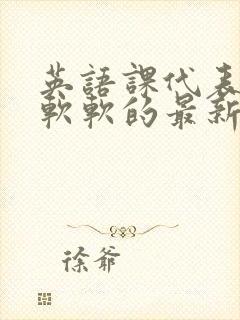 英語課代表
軟軟的最新
徐爺